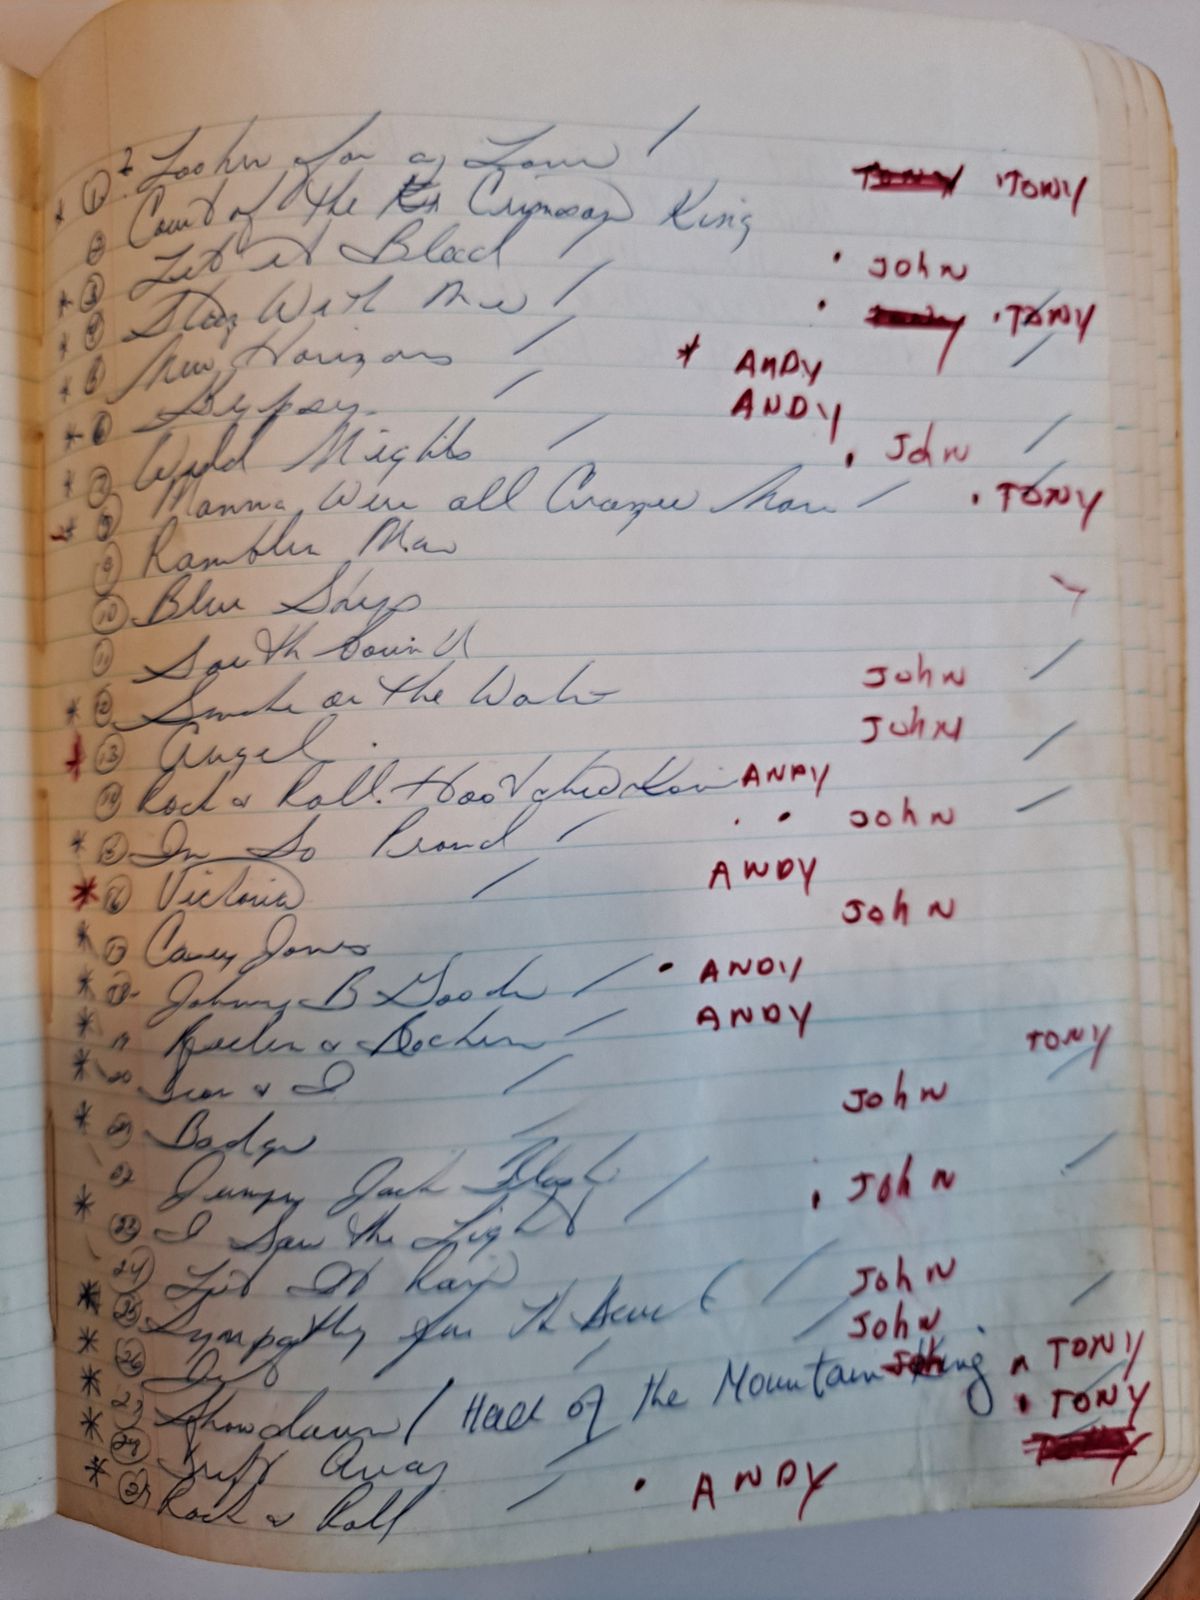 * ① Lookin for a Love / TONY 'TONY
② Court of the Crimson King
* ③ Let it Bleed · John
* ④ Stay With Me / · TONY
* ⑤ New Horizons / * ANDY
* ⑥ Gypsy / ANDY
* ⑦ Wild Nights / · John
⑧ Mamma Were all Crazee Now / · TONY
⑨ Ramblin Man
⑩ Blue Sky
⑪ South bound
* ⑫ Smoke on the Water John
⑬ Angel John
⑭ Rock & Roll Hootchie Koo ANDY
* ⑮ Im So Proud / John
* ⑯ Victoria / ANDY
* ⑰ Casey Jones John
* ⑱ Johnny B Goode / · ANDY
* 19 / ANDY
* 20 & I / TONY
* 21 Badge John
22 Jumpin Jack Flash
* ㉓ I Saw the Light / · John
㉔ Let It Rain / John
* ㉕ Sympathy for the John
* ㉖ · TONY
* 27 Showdown / Hall of the Mountain King · TONY
* ㉘ Drift Away
* ㉙ Rock & Roll / · ANDY